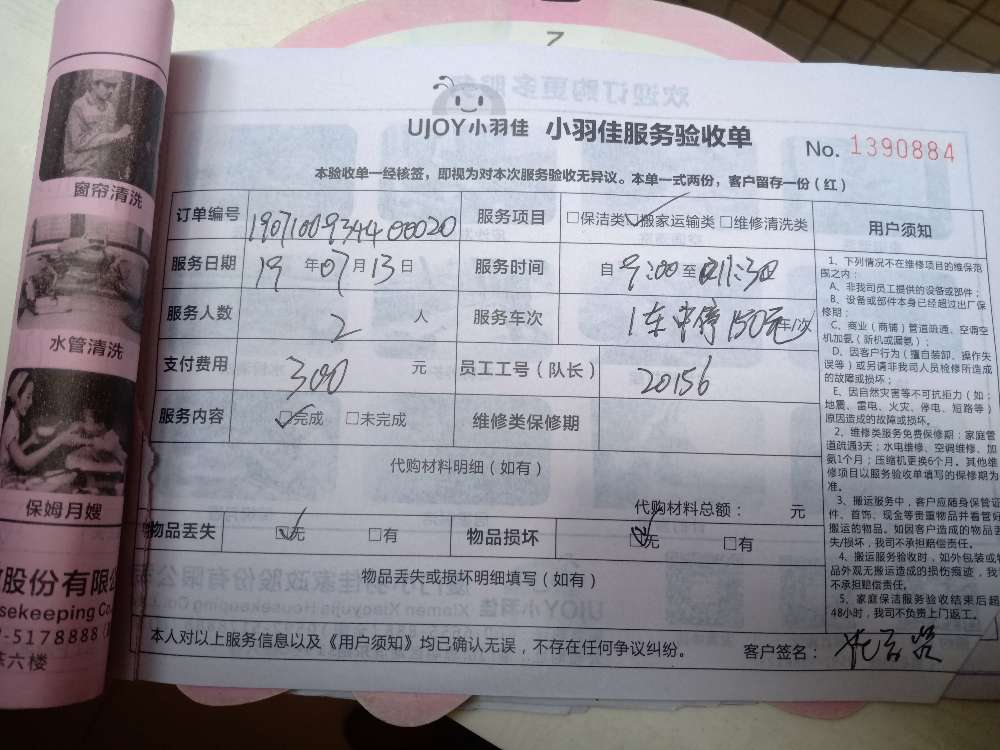 Z
窗帘清洗
水管清洗
保姆月嫂
股份有限
sekeeping Co.
-5178888
六楼
UJOY小羽佳 小羽佳服务验收单 No. 1390884
本验收单一经核签，即视为对本次服务验收无异议。本单一式两份，客户留存一份（红）
订单编号 190710093440​0020 服务项目 □保洁类 ☑搬家运输类 □维修清洗类
服务日期 19 年 07 月 13 日 服务时间 自 9:00 至 11:30
服务人数 2 人 服务车次 1车 150元 车/次
支付费用 300 元 员工工号（队长） 20156
服务内容 ☑完成 □未完成 维修类保修期
代购材料明细（如有）
代购材料总额： 元
物品丢失 ☑无 □有 物品损坏 ☑无 □有
物品丢失或损坏明细填写（如有）
本人对以上服务信息以及《用户须知》均已确认无误，不存在任何争议纠纷。 客户签名：
用户须知
1、下列情况不在维修项目的维保范
围之内：
A、非我司员工提供的设备或部件；
B、设备或部件本身已经超过出厂保
修期；
C、商业（商铺）管道疏通、空调空
机加氨（新机或漏氨）；
D、因客户行为（擅自装卸、操作失
误等）或另请非我司人员检修所造成
的故障或损坏；
E、因自然灾害等不可抗拒力（如：
地震、雷电、火灾、停电、短路等）
原因造成的故障或损坏。
2、维修类服务免费保修期：家庭管
道疏通3天；水电维修、空调维修、加
氨1个月；压缩机更换6个月。其他维
修项目以服务验收单填写的保修期为
准。
3、搬运服务中，客户应随身保管证
件、首饰、现金等贵重物品并看管好
搬运的物品。如因客户造成的物品丢
失/损坏，我司不承担赔偿责任。
4、搬运服务验收时，如外包装或物
品外观无搬运造成的损伤痕迹，我
不承担赔偿责任。
5、家庭保洁服务验收结束后超
48小时，我司不负责上门返工。